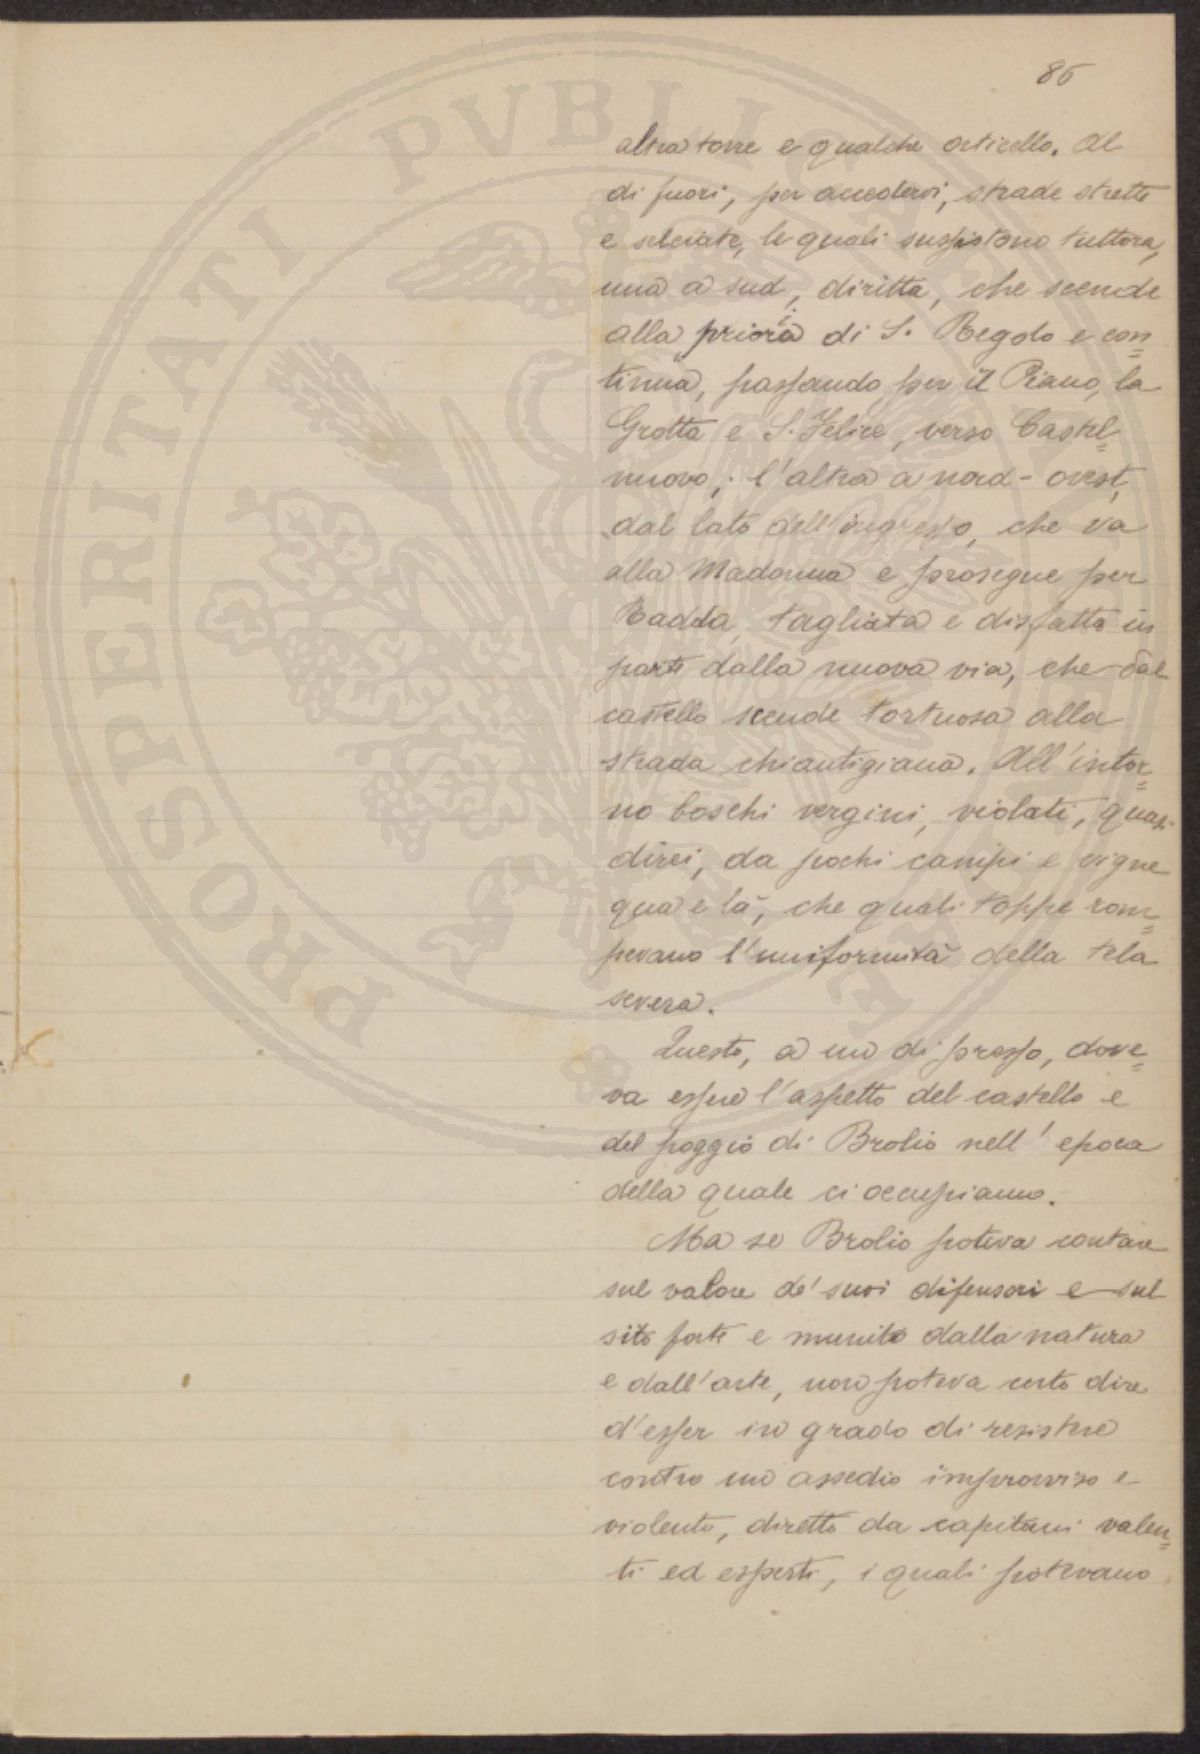 86
altra torre e qualche orticello. Al
di fuori, per accedervi, strade strette
e selciate, le quali sussistono tuttora,
una a sud, diritta, che scende
alla prioria di S. Regolo e con=
tinua, passando per il Piano, la
Grotta e S. Felice, verso Castel=
nuovo; l'altra a nord-ovest,
dal lato dell'ingresso, che va
alla Madonna e prosegue per
Radda, tagliata e disfatta in
parte dalla nuova via, che dal
castello scende tortuosa alla
strada chiantigiana. All'intor=
no boschi vergini, violati, quasi
direi, da pochi campi e vigne
qua e là, che quali toppe rom=
pevano l'uniformità della tela
severa.
Questo, a un di presso, dove=
va essere l'aspetto del castello e
del poggio di Brolio nell'epoca
della quale ci occupiamo.
Ma se Brolio poteva contare
sul valore de' suoi difensori e sul
sito forte e munito dalla natura
e dall'arte, non poteva certo dire
d'esser in grado di resistere
contro un assedio improvviso e
violento, diretto da capitani valen=
ti ed esperti, i quali potevano
PROSPERITATI PVBLICAE